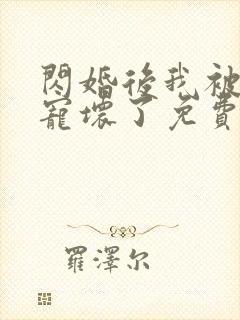 閃婚後我被
寵壞了免費
羅澤尔